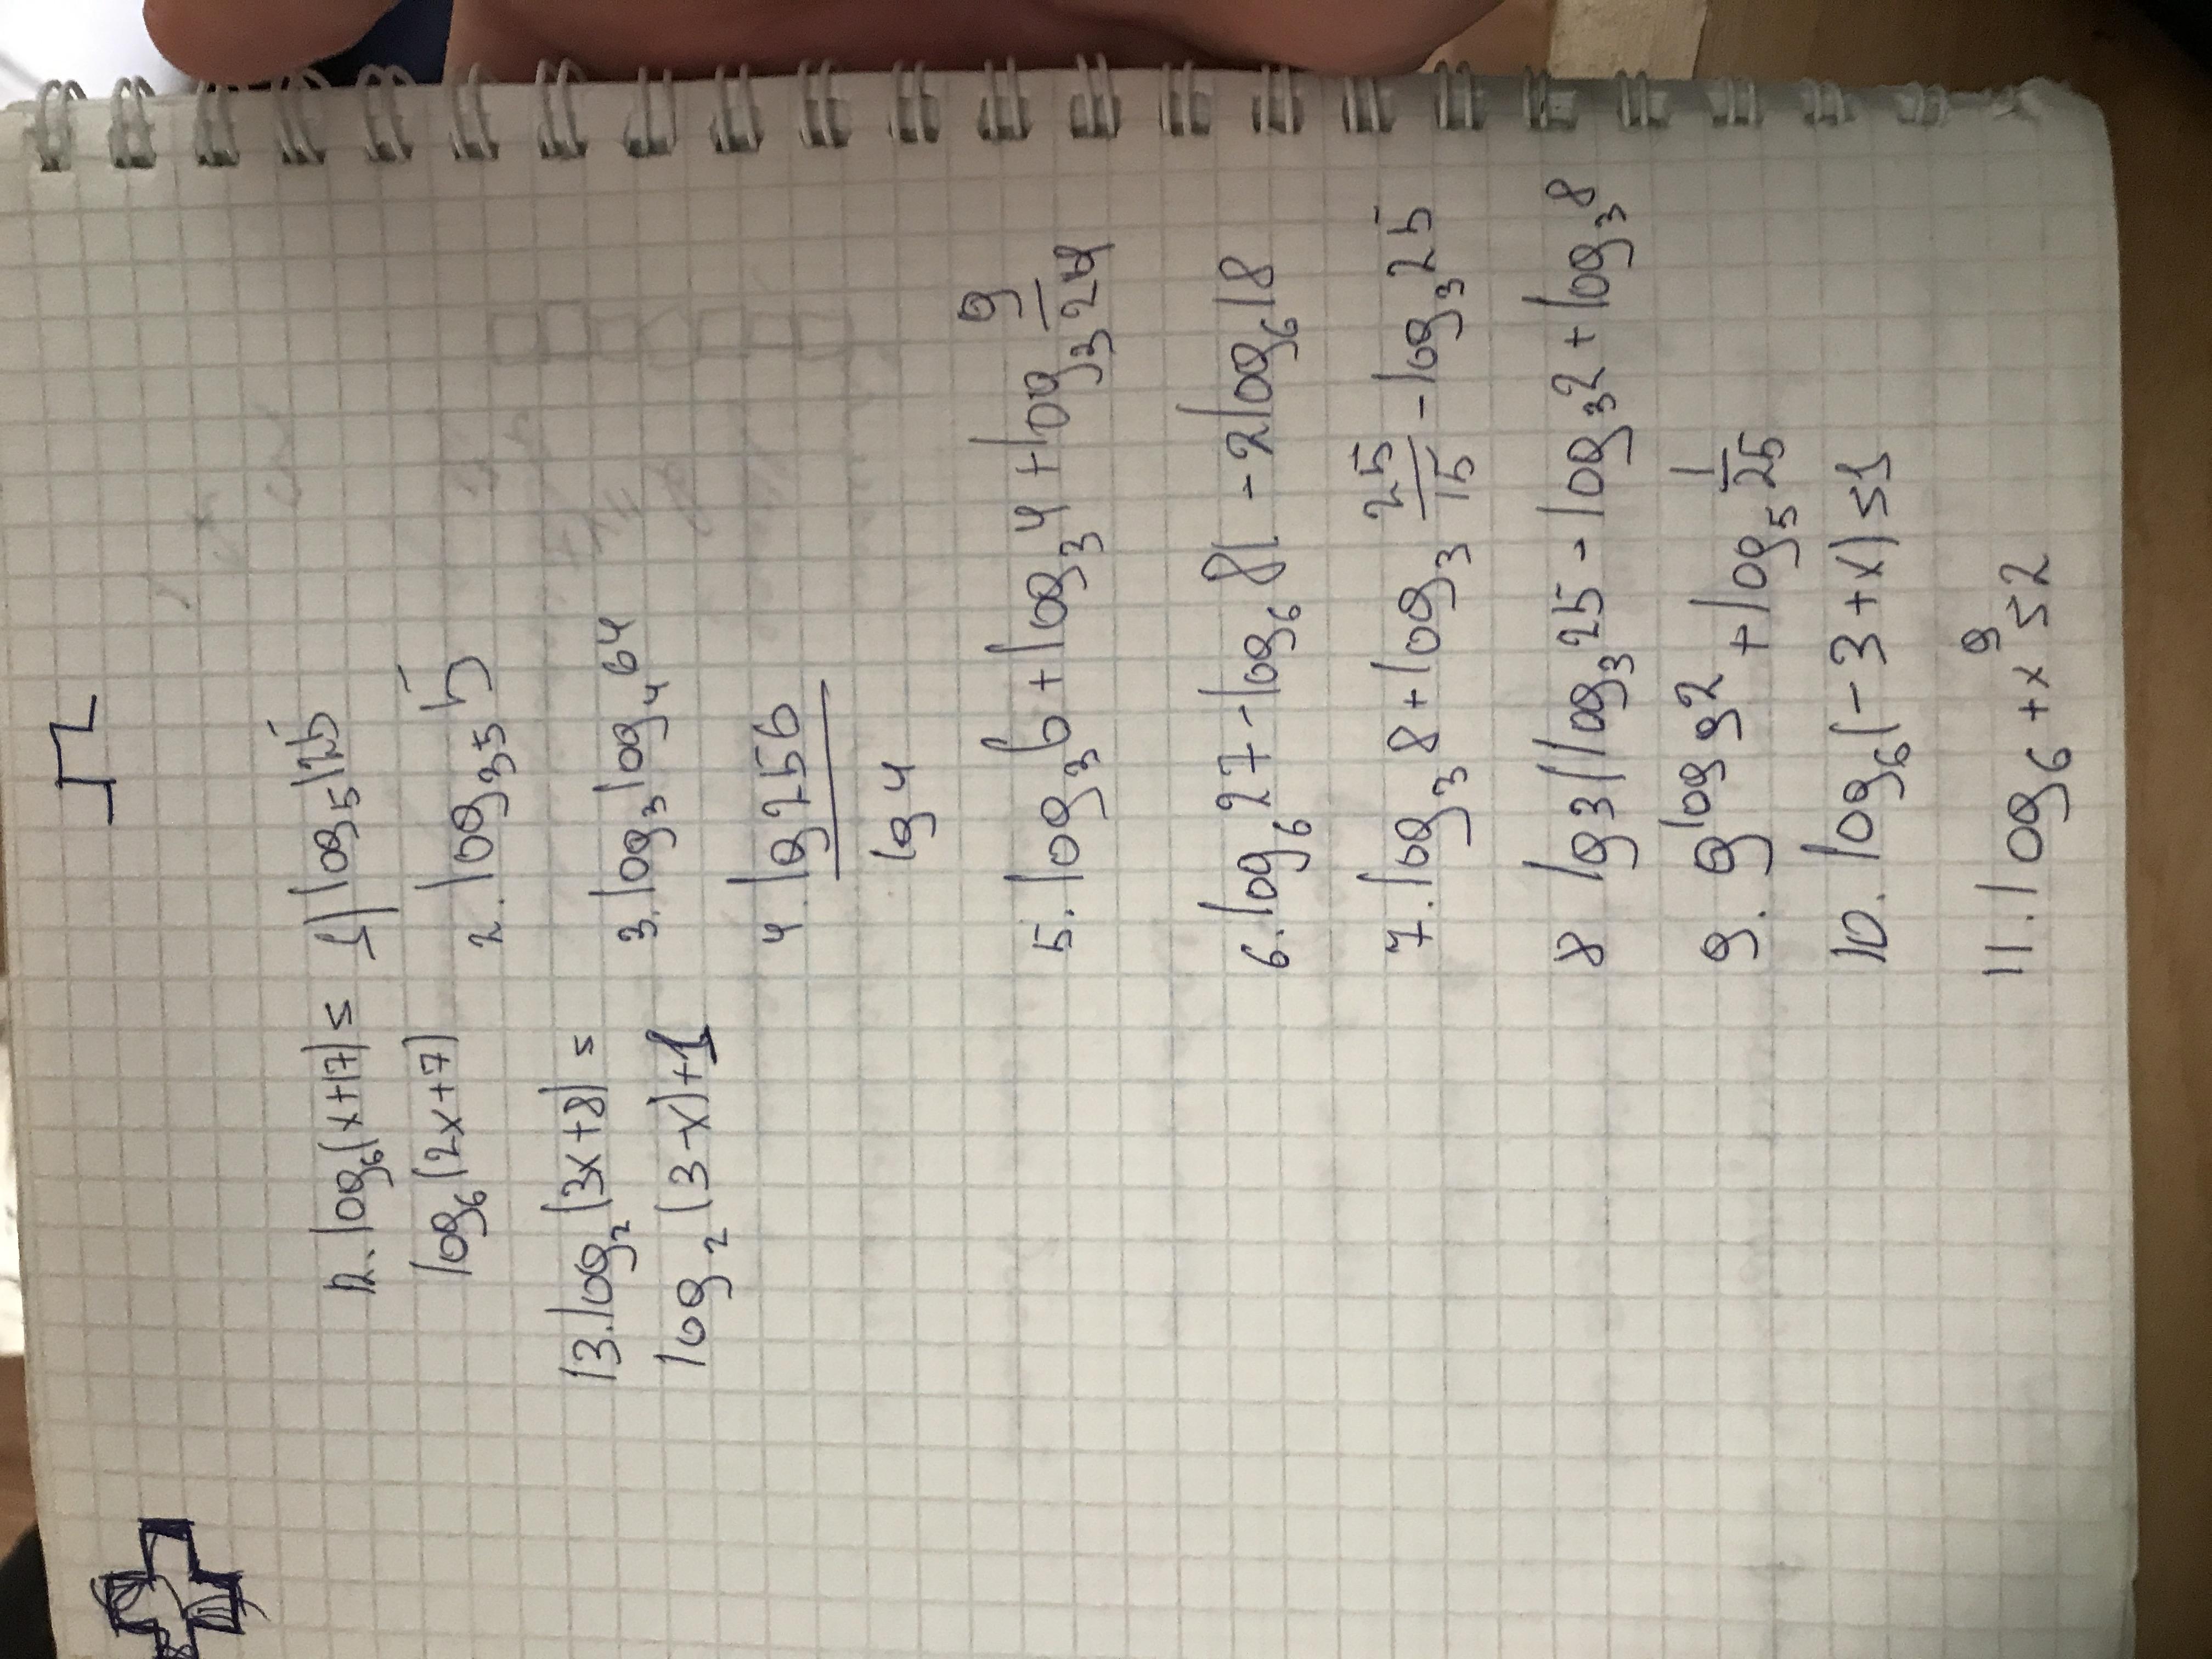 1) log₅125
2. log₃₅5
3. log₃log₄64
4. lg256
lg4
5. log₃6 + log₃4 + log₃ 9/24
6. log₆27 - log₆81 - 2log₆18
7. log₃8 + log₃ 25/15 - log₃25
8 lg3(log₃25 - log₃2 + log₃8
9. 9^log₉2 + log₅ 1/25
10. log₆(-3+x)≤1
12. log₆(x+17)≤
log₆(2x+7)
13. log₂(3x+8)=
log₂(3-x)+1